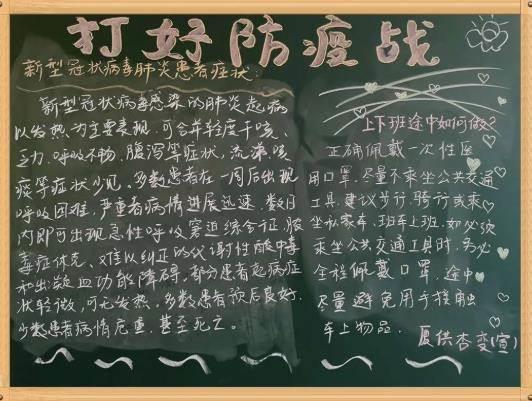 打好防疫战
新型冠状病毒肺炎患者症状:
新型冠状病毒感染的肺炎起病
以发热为主要表现,可合并轻度干咳、
乏力、呼吸不畅、腹泻等症状,流涕、咳
痰等症状少见。多数患者在一周后出现
呼吸困难,严重者病情进展迅速,数日
内即可出现急性呼吸窘迫综合征、脓
毒症休克、难以纠正的代谢性酸中毒
和出凝血功能障碍。部分患者起病症
状轻微,可无发热。多数患者预后良好,
少数患者病情危重,甚至死亡。
上下班途中如何做?
正确佩戴一次性医
用口罩。尽量不乘坐公共交通
工具,建议步行、骑行或乘
坐私家车、班车上班。如必须
乘坐公共交通工具时,务必
全程佩戴口罩。途中
尽量避免用手接触
车上物品。
厦供杏变(宣)